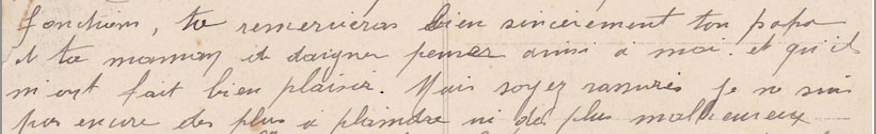 fonctions, tu remercieras bien sincèrement ton papa
et ta maman de daigner penser ainsi à moi. et qu'ils
m'ont fait bien plaisir. Mais soyez rassurés je ne suis
pas encore des plus à plaindre ni des plus malheureux